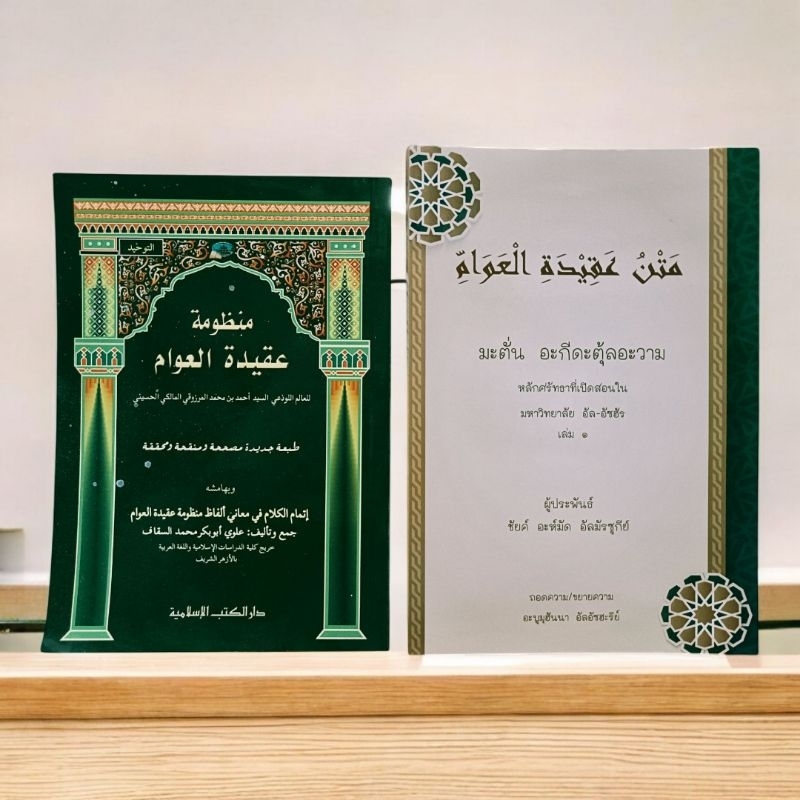 التوحيد
منظومة
عقيدة العوام
للعالم اللوذعي السيد أحمد بن محمد المرزوقي المالكي الحسيني
طبعة جديدة مصححة ومنقحة ومحققة
وبهامشه
إتمام الكلام في معاني ألفاظ منظومة عقيدة العوام
جمع وتأليف: علوي أبوبكر محمد السقاف
خريج كلية الدراسات الإسلامية واللغة العربية
بالأزهر الشريف
دار الكتب الإسلامية
مَتْنُ عَقِيْدَةِ الْعَوَامِّ
มะตั่น อะกีดะตุ้ลอะวาม
หลักศรัทธาที่เปิดสอนใน
มหาวิทยาลัย อัล-อัซฮัร
เล่ม ๑
ผู้ประพันธ์
ชัยค์ อะห์มัด อัลมัรซูกีย์
ถอดความ/ขยายความ
อะบูมุฮันนา อัลอัซฮะรีย์